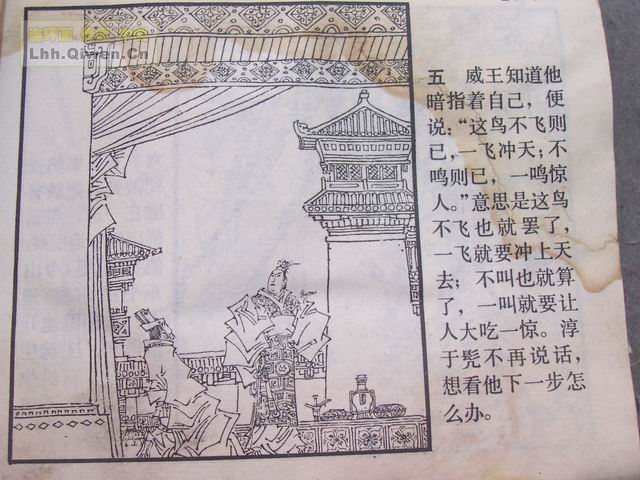 连环画
Lhh.Qiwen.Cn
五 威王知道他
暗指着自己，便
说：“这鸟不飞则
已，一飞冲天；不
鸣则已，一鸣惊
人。”意思是这鸟
不飞也就罢了，
一飞就要冲上天
去；不叫也就算
了，一叫就要让
人大吃一惊。淳
于髡不再说话，
想看他下一步怎
么办。